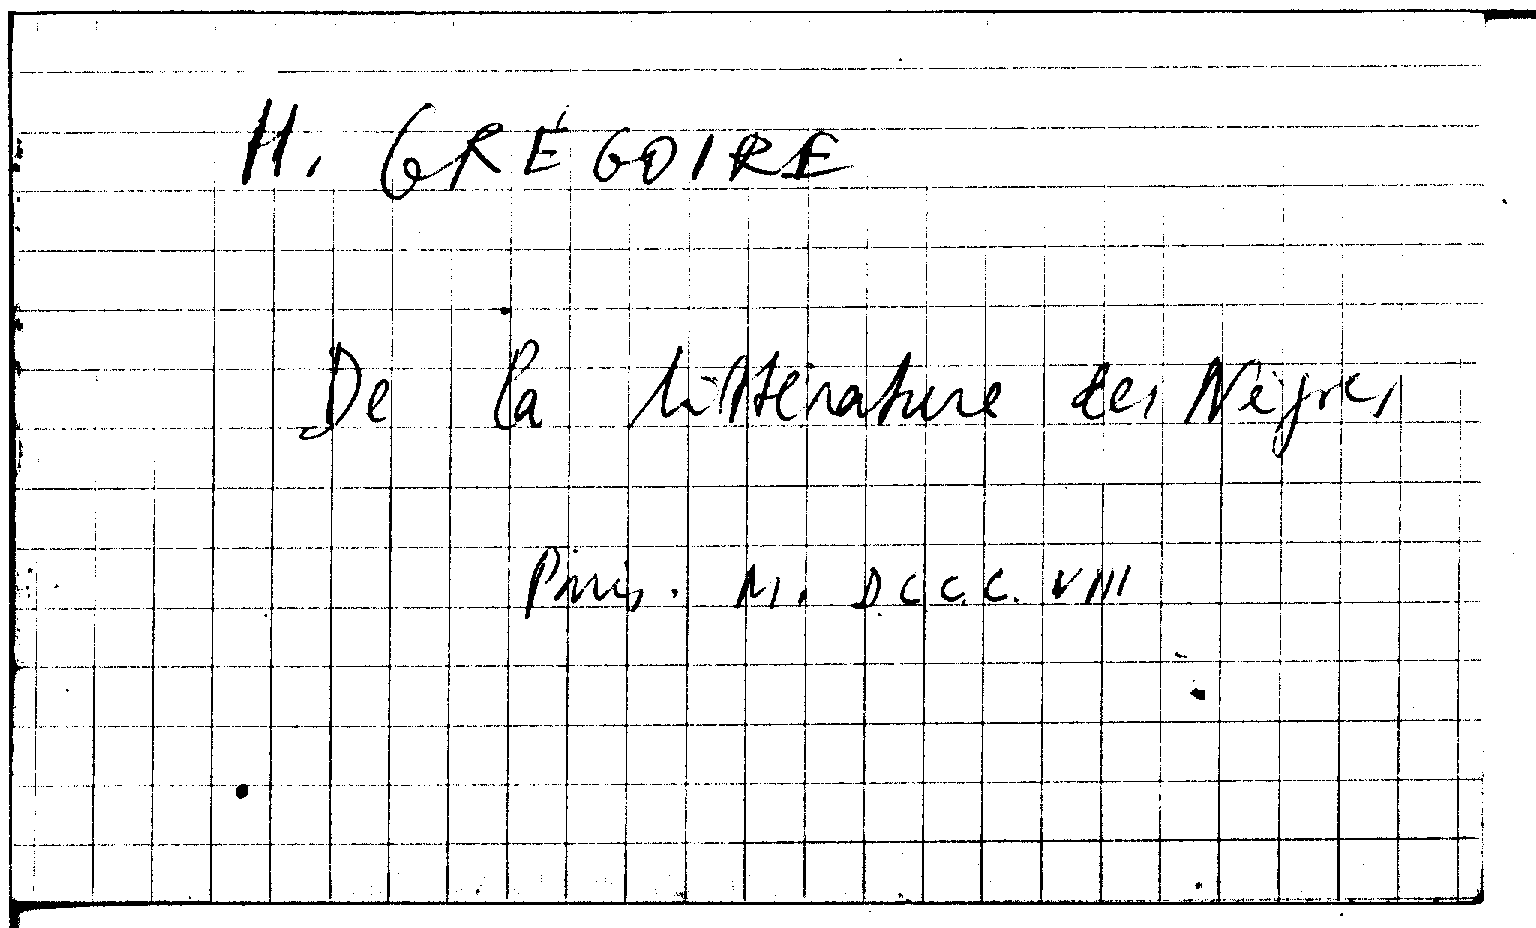 H. GRÉGOIRE
De la littérature des Nègres
Paris. M. DCCC. VIII